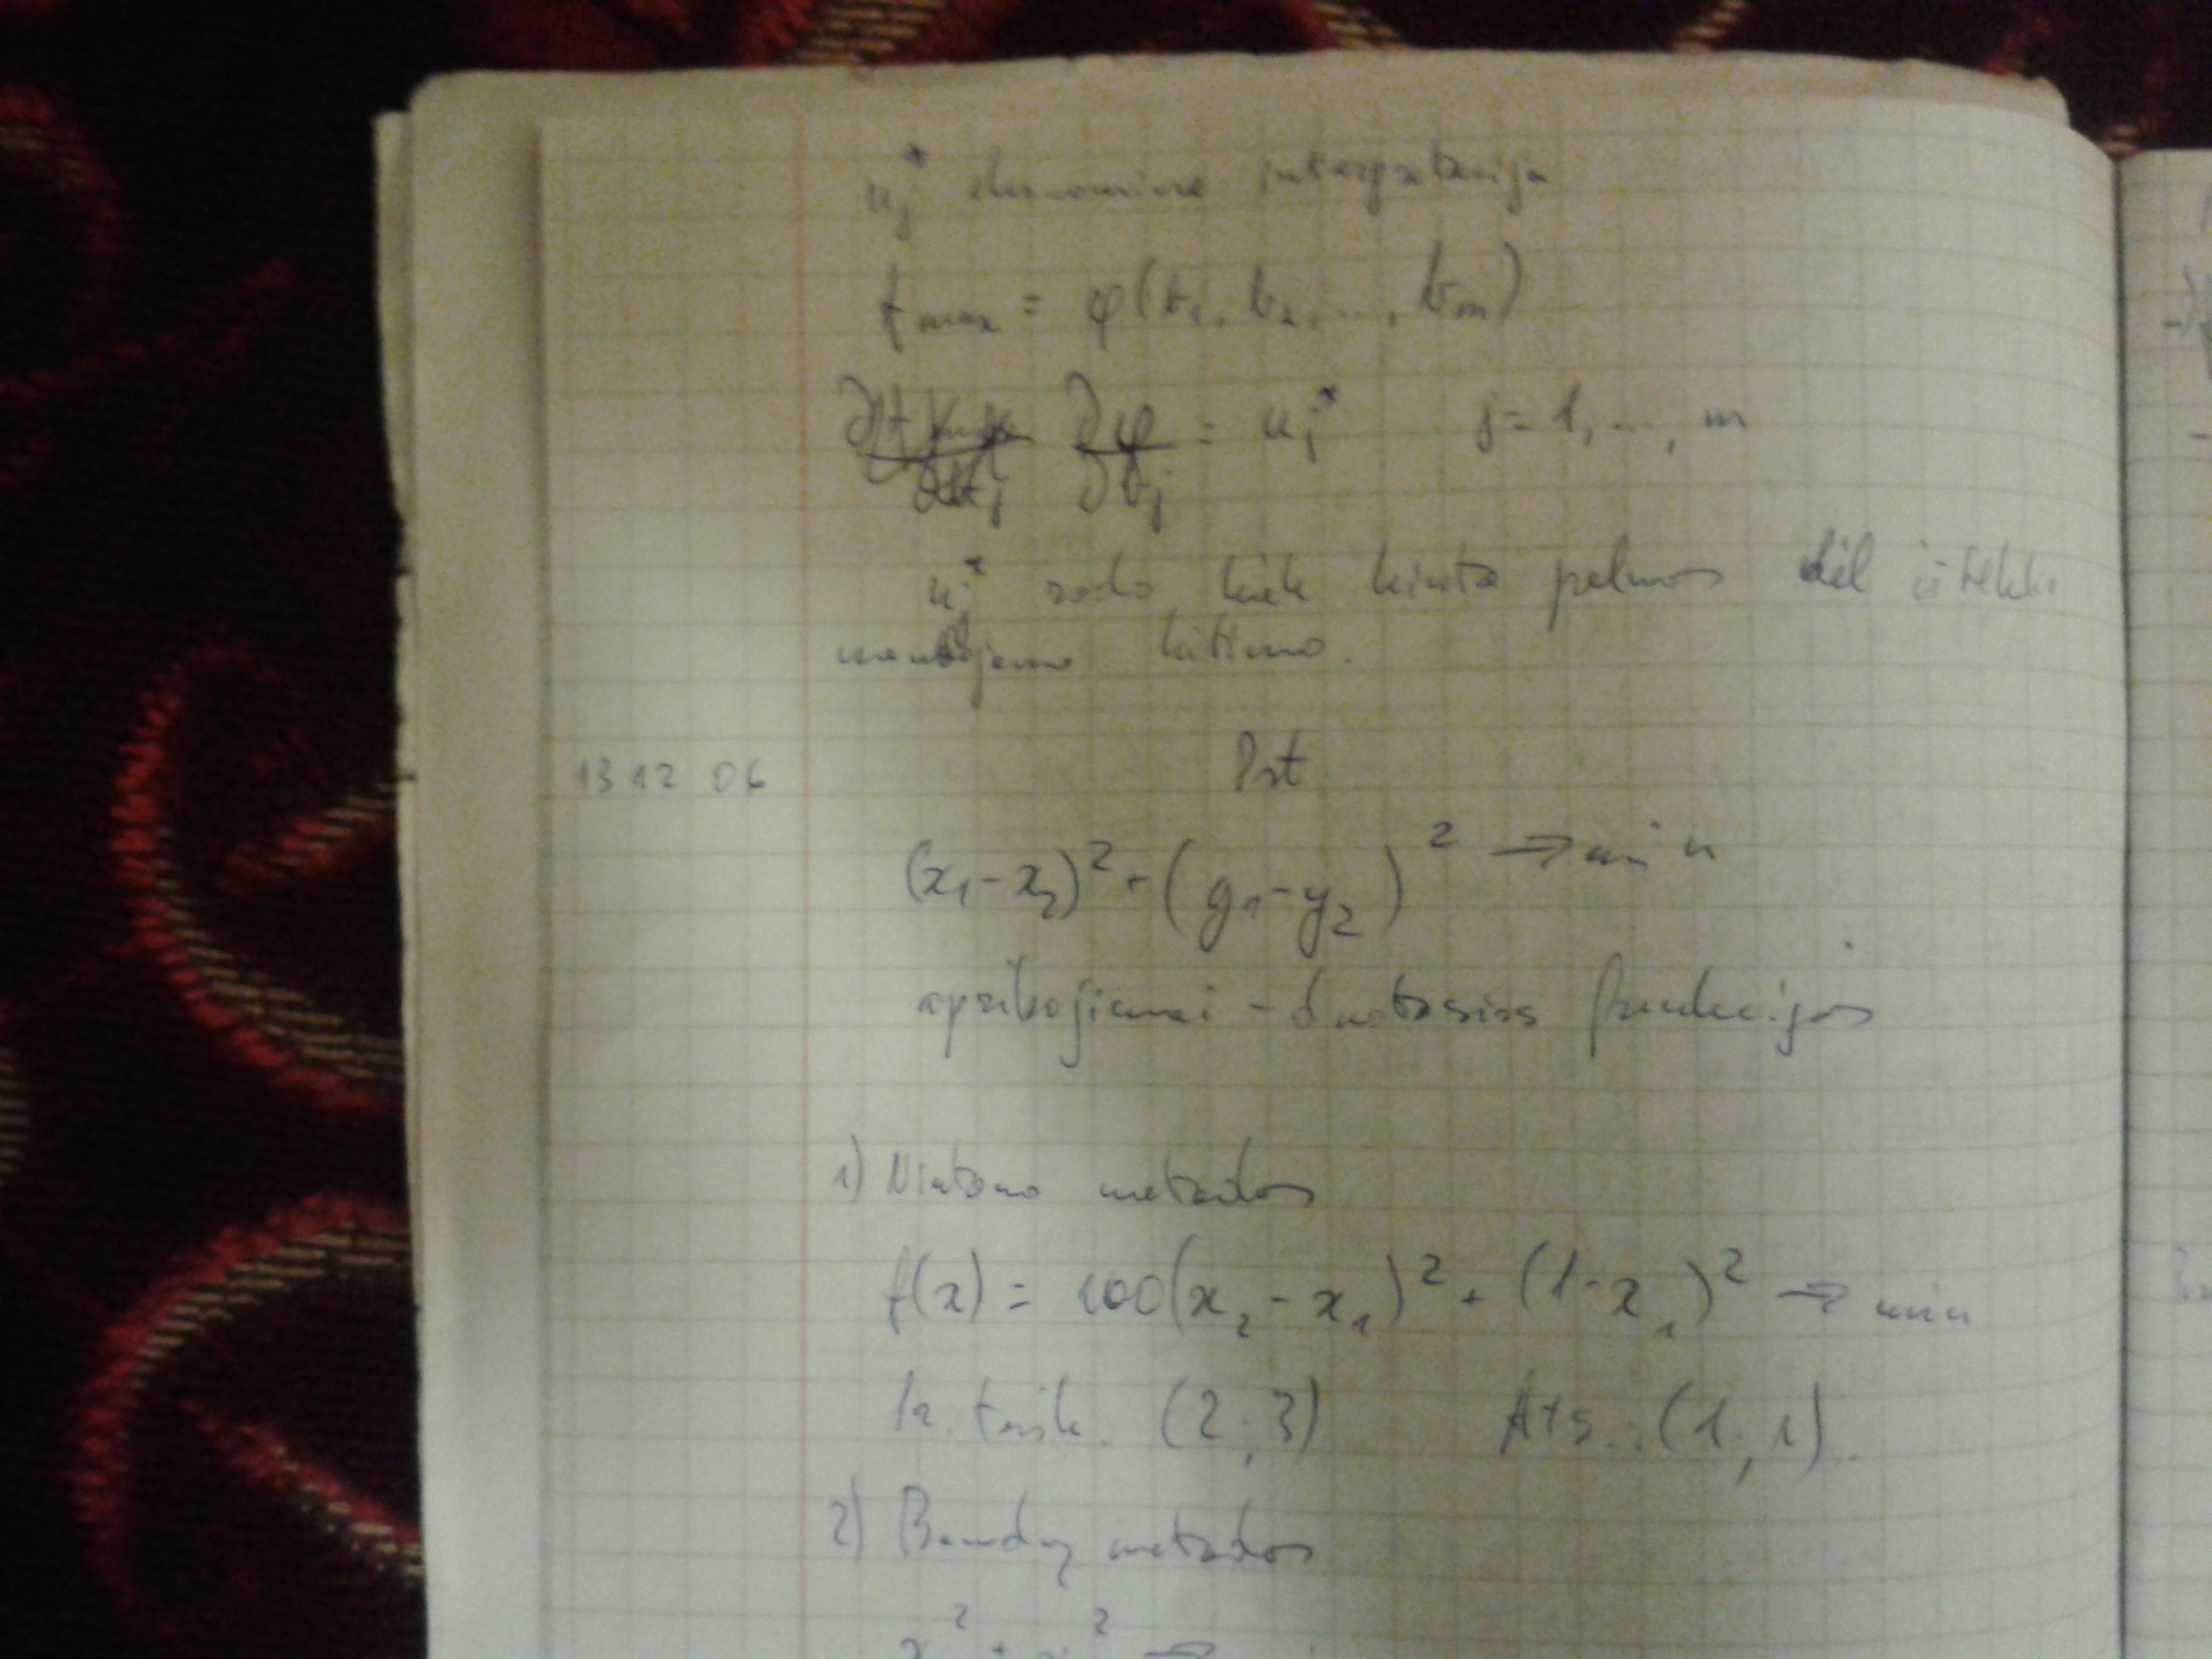 u_j* ekonominė interpretacija
f_max = φ(b₁, b₂, ..., b_m)
∂φ/∂b_j = u_j* j = 1, ..., m
u_j* rodo, kiek kinta pelnas dėl ištekliu
naudojamo kitimo.
13 12 06 Prt
(x₁ - x₂)² + (y₁ - y₂)² → min
apribojimai - duotosios funkcijos
1) Niutono metodas
f(x) = 100(x₂ - x₁)² + (1 - x₁)² → min
(2; 3) Ats.: (1; 1).
2) Baudų metodas